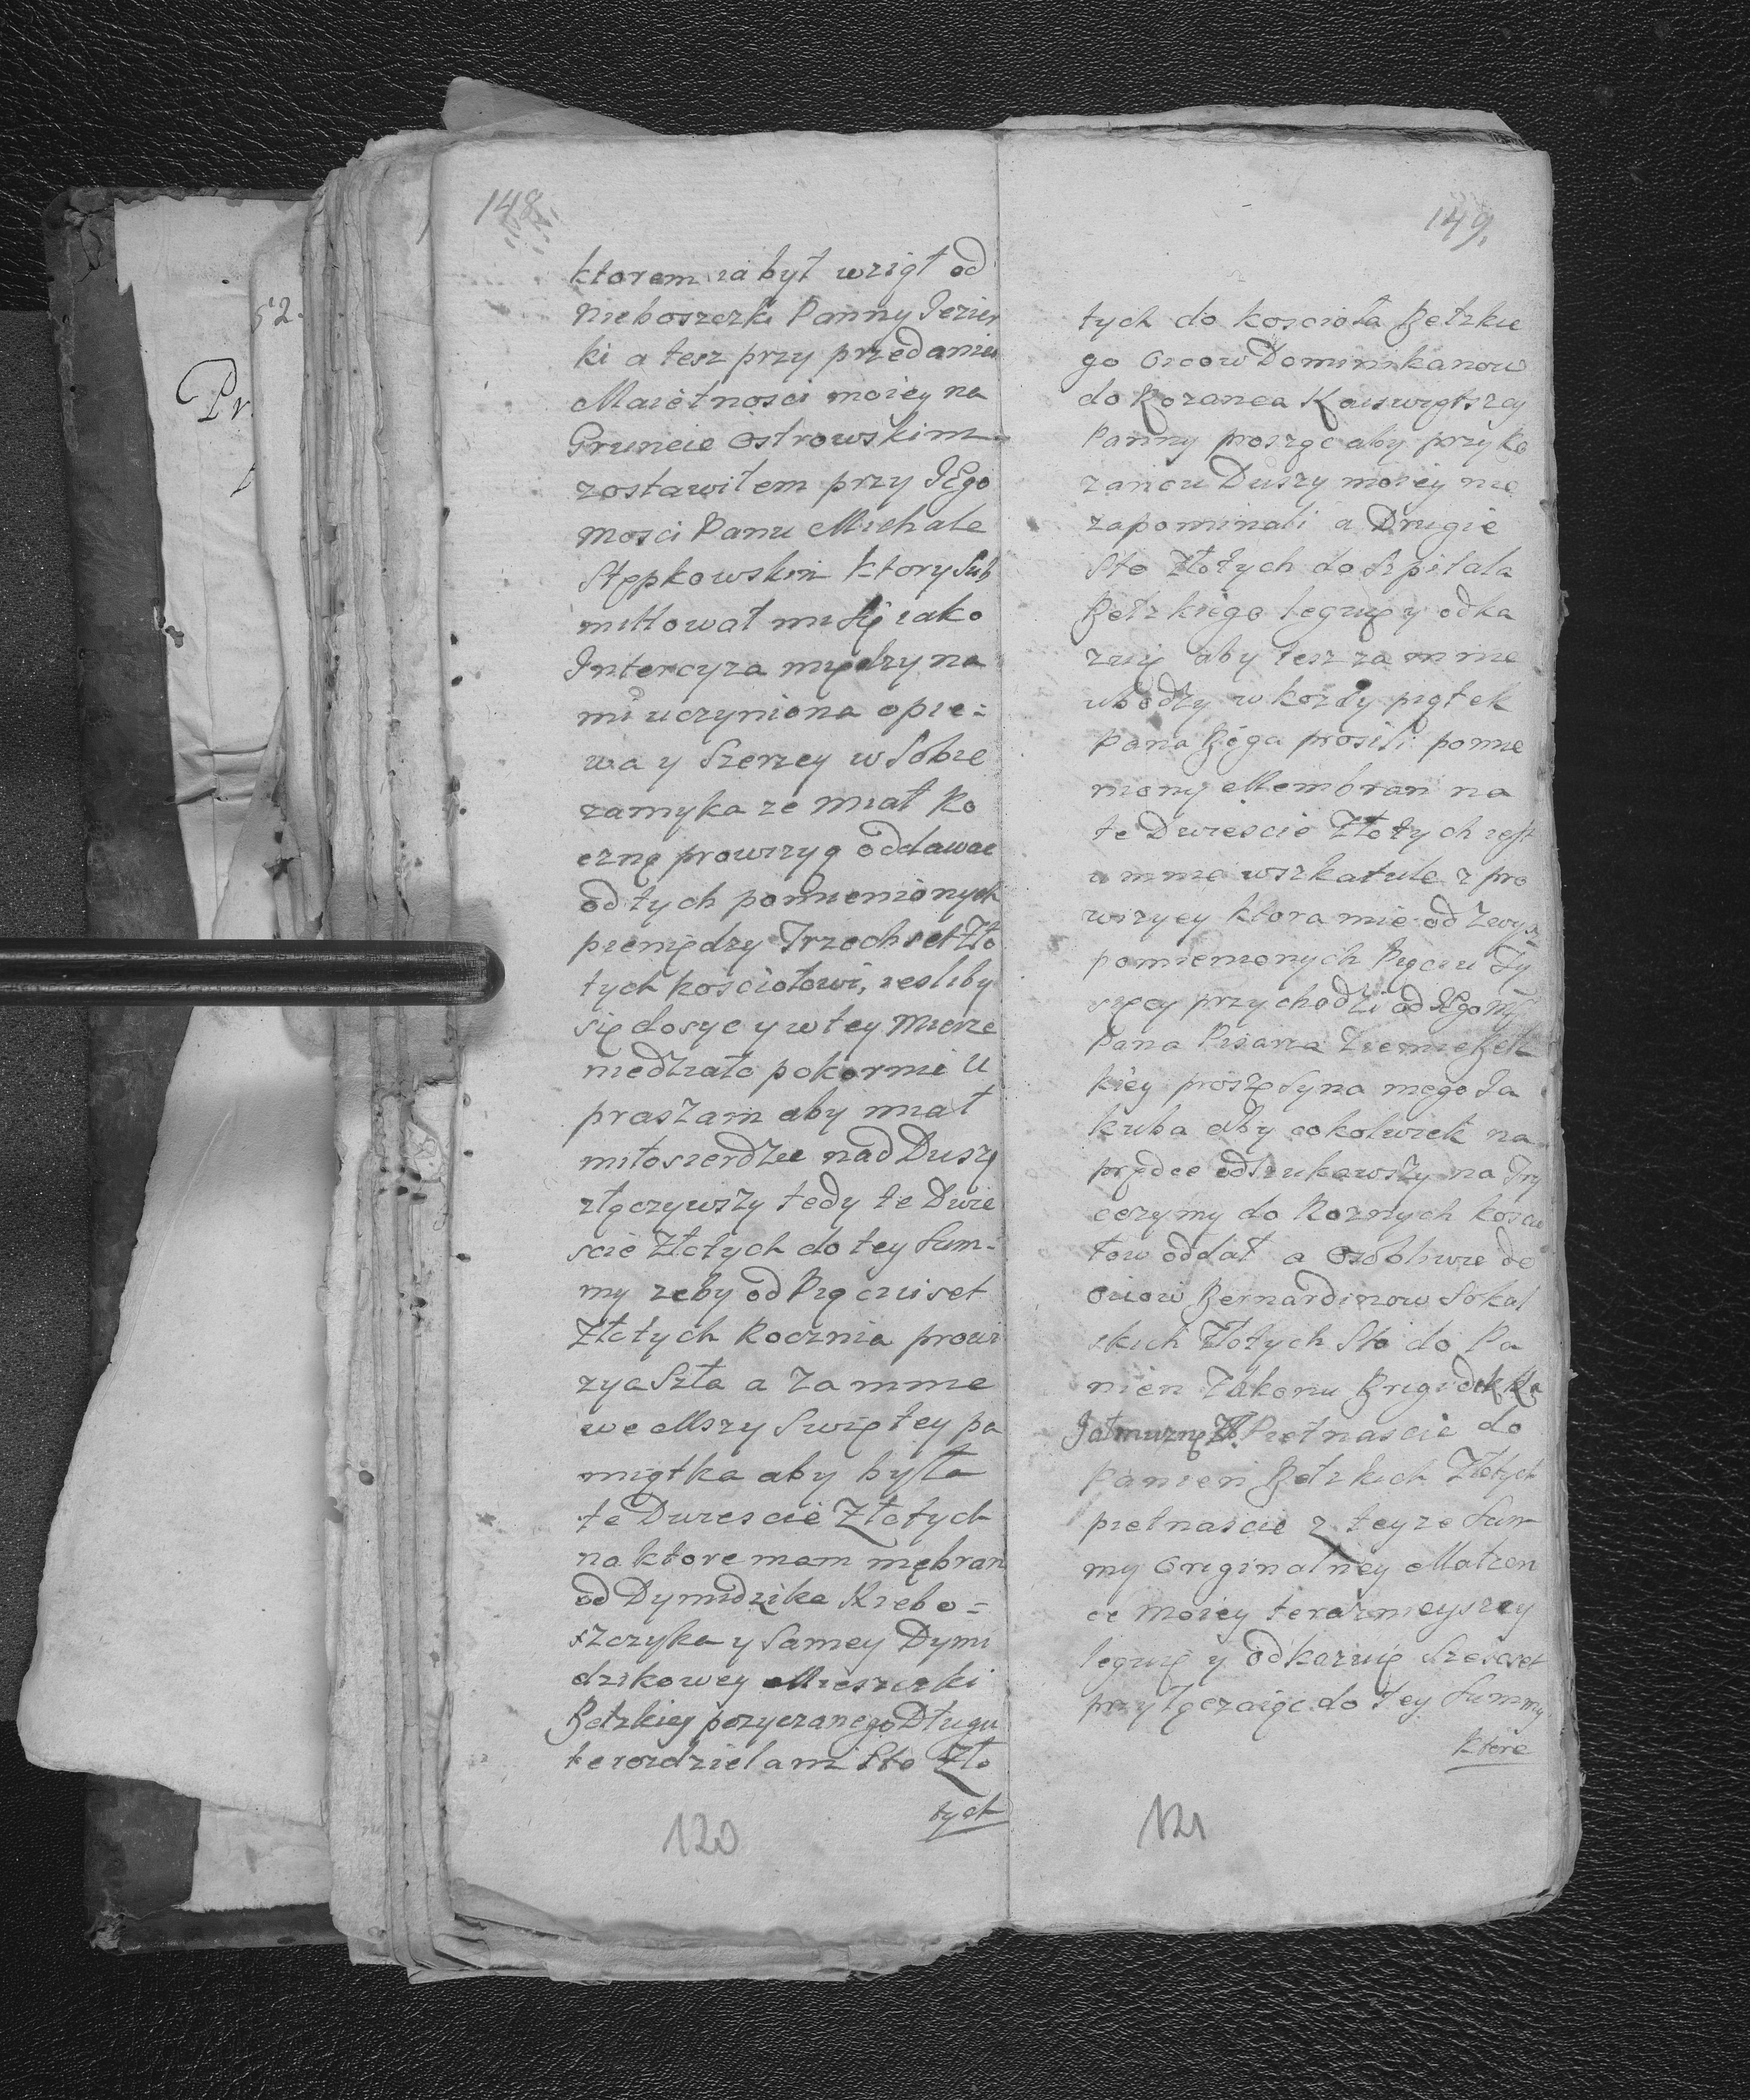 148.
ktorem ia był wziął od
Nieboszczki Panny Jezier
ki a tesz przy przedaniu
Maiętnosci moiey na
Gruncie Ostrowskim
zostawiłem przy JEgo
mosci Panu Michale
Stępkowskim ktory Sub
mittował mi się iako
Intercyza między na
mi uczyniona opie=
wa y Szerzey w Sobie
zamyka ze miał Ro
czną prowizyą oddawac
od tych pomienionych
pieniędzy Trzechset Zło
tych kościołowi, iesliby
się dosyc y w tey mierze
niedziało pokornie U
praszam aby miał
miłosierdzie nad Duszą
złączywszy tedy te Dwie
scie Złotych do tey Sum=
my zeby od Pięciuset
Złotych Rocznia prowi
zya Szła a za mnie
we Mszy Swiętey pa
miątka aby była
te Dwiescie Złotych
na ktore mam mębran
od Dymidzika Niebo=
szczyka y Samey Dymi
dzikowey Mieszczki
Bełzkiey pozyczanego Długu
te rozdzielam Sto Zło
tych
120
149.
tych do koscioła Bełzkie
go Oycow Dominikanow
do Rozanca Naiswiętszey
Panny prosząc aby przy Ro
zancu Duszy moiey nie
zapominali a Drugie
Sto Złotych do Szpitala
Bełzkiego leguię y odka
zuię aby tesz za mnie
ubodzy w kozdy piątek
Pana Boga prosili pomie
niony Membran na
te Dwiescie Złotych iest
u mnie w szkatule z pro
wizyey ktora mie od zwysz
pomienionych Pięciu Ty
sięcy przychodzi od JEgoMSci
Pana Pisarza Ziemie Beł
kiey proszę Syna mego Ja
kuba aby cokolwiek na
prędce odszukawszy na Try
cezymy do Roznych koscio
łow oddał a Osobliwie do
Oycow Bernardinow Sokal
skich Złotych Sto do Pa
nien Zakonu Brigidek Na
Jałmuznę Zł. Pietnascie do
Panien Bełzkich Złotych
pietnascie z teyze Sum
my Originalney Małzon
ce moiey teraznieyszey
leguię y odkazuię Szescset
przyłączaiąc do tey Summy
ktore
121
52.
Pr